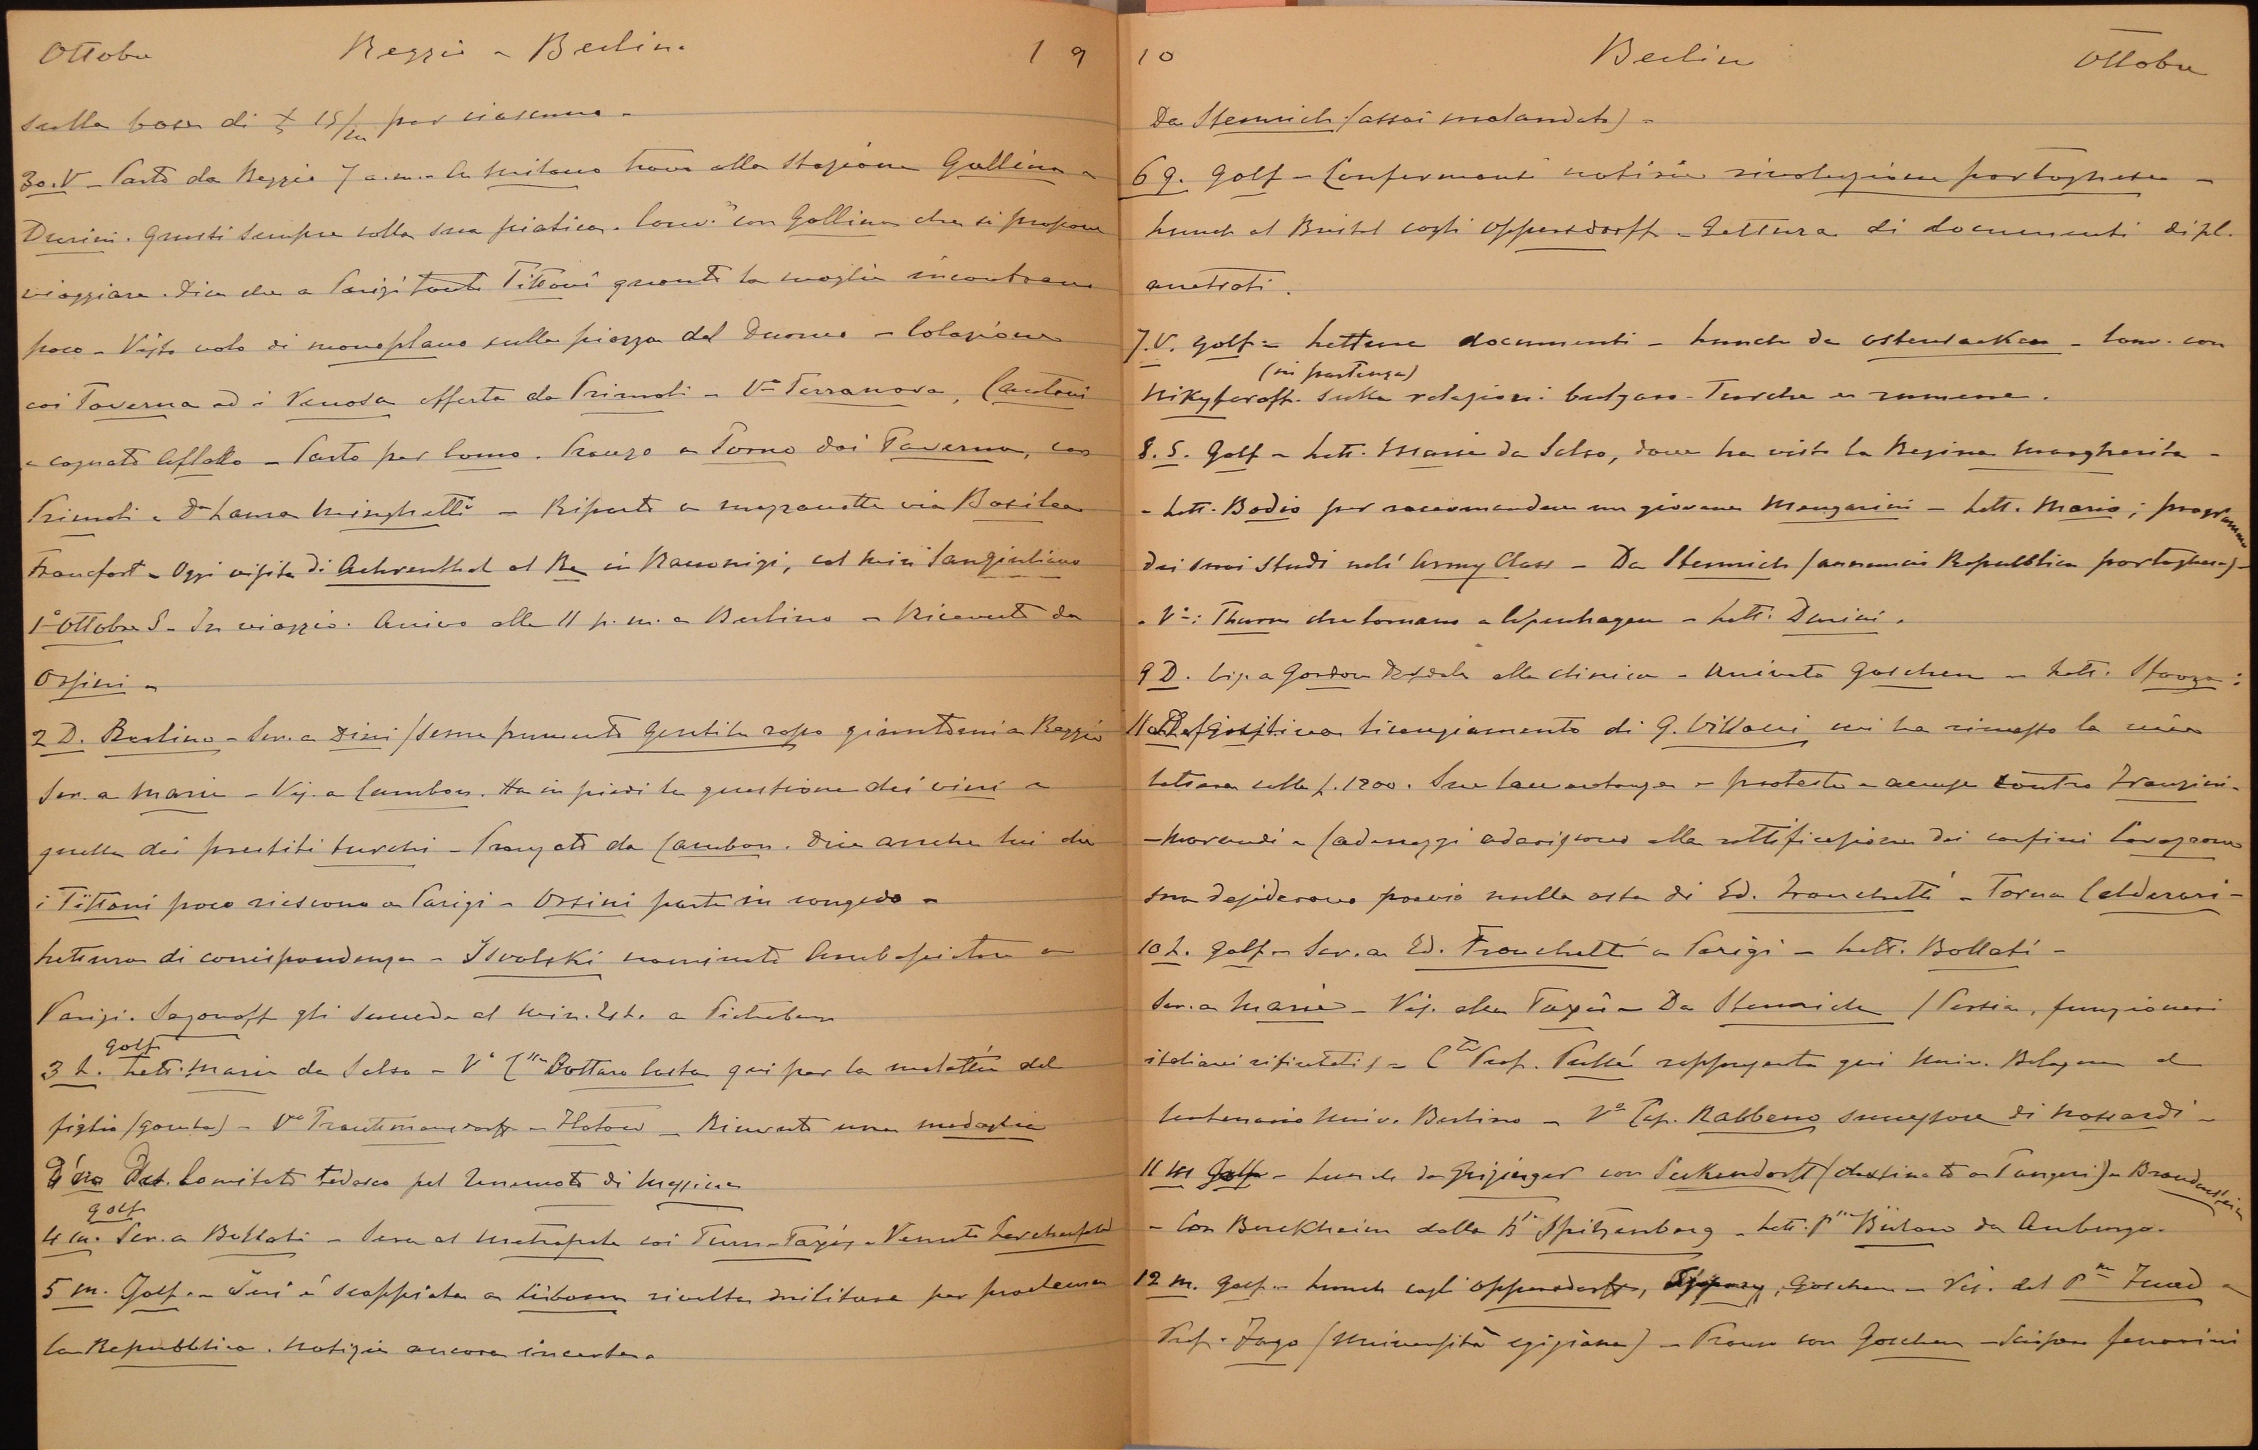 Ottobre Reggio - Berlino 19
sulla base di £ 15/m per ciascuno -
30.V - Parto da Reggio 7 a.m. - A Milano trovo alla stazione Gallina e
Durini. Questi sempre colla sua sciatica. Conv.ne con Gallina che si propone
viaggiare. Dice che a Parigi tanto Tittoni quanto la moglie incontrano
poco - Visto volo di monoplano sulla piazza del Duomo - Colazione
coi Taverna ed i Venosa offerta da Primoli - Vo Terranova, Cantoni
e cognato - Parto per Como. Pranzo a Torno dai Taverna, con
Primoli e Da Laura Minghetti - Riparto a mezzanotte via Basilea
Francfort - Oggi visita di Aehrenthal al Re in Racconigi, col Min. Sangiuliano
1° Ottobre S - In viaggio. Arrivo alle 11 p.m. a Berlino - Ricevuto da
Orsini -
2 D. Berlino - Scr. a Dini / Gentile giuntomi a Reggio
Scr. a Marie - Vis. a Cambon. Ha in piedi la questione dei vini e
quella dei prestiti turchi - Pranzato da Cambon. Dice anche lui che
i Tittoni poco riescono a Parigi - Orsini parte in congedo -
Lettura di corrispondenza - Isvolski nominato Ambasciatore a
Parigi. Sazonoff gli succede al Min. Est. a Pietroburgo
golf
3 L. Lett. Marie da Salso - Vo Bottaro Costa qui per la malattia del
figlio - Vo Trautmansdorff - Flotow - Ricevuto una medaglia
d'oro dal Comitato tedesco pel terremoto di Messina
golf
4 M. Scr. a Bollati - Sera al Metropole coi Turn-Taxis - Venuto Lerchenfeld
5 M. Golf - Ieri è scoppiata a Lisbona rivolta militare per proclamare
la Repubblica. Notizie ancora incerte -
10 Berlin Ottobre
Da Stemrich (assai malandato) -
6 G. Golf - Confermansi notizie rivoluzione portoghese -
Lunch al Bristol cogli Oppersdorff - Lettura di documenti dipl.
arretrati.
7.V. Golf - Lettura documenti - Lunch da Ostensacken - Conv. con
(in partenza)
Nikyforoff sulle relazioni bulgaro-turche e rumene.
8.S. Golf - Lett. Marie da Salso, dove ha visto la Regina Margherita -
- Lett. Bodio per raccomandare un giovane Mengarini - Lett. Mario; programma
dei suoi studi nell'Army Class - Da Stemrich (annuncio Repubblica portoghese) -
- Vo: Thurn che tornano a Copenhagen - Lett. Durini.
9 D. Vis. a Gordon alla clinica - Arrivato Goschen - Lett. Sforza:
licenziamento di G. Villani mi ha rimesso la mia
lettera colle £. 1200. Sue lamentanze e proteste e accuse contro Franzini -
- Morandi e Cadenazzi aderiscono alla rettificazione dei confini
ma desiderano previo nulla osta di Ed. Franchetti - Torna Calderari -
10 L. Golf - Scr. a Ed. Franchetti a Parigi - Lett. Bollati -
Scr. a Marie - Vis. alla Taxis - Da Stemrich (Persia, funzionari
italiani rifiutati) - Cte Prof. Pullé rappresenta qui Univ. Bologna al
Centenario Univ. Berlino - Vo Cap. Rabbeno successore di
11 M Golf - Lunch da Griesinger con Seckendorff (destinato a Tangeri) e Brandenstein
- Con Berckheim dalla Bnne Spitzenberg - Lett. Pnne Bülow da Amburgo.
12 M. Golf - Lunch cogli Oppersdorff, Goschen - Vis. del Pe Fuad e
Prof. (Università egiziana) - Pranzo con Goschen -